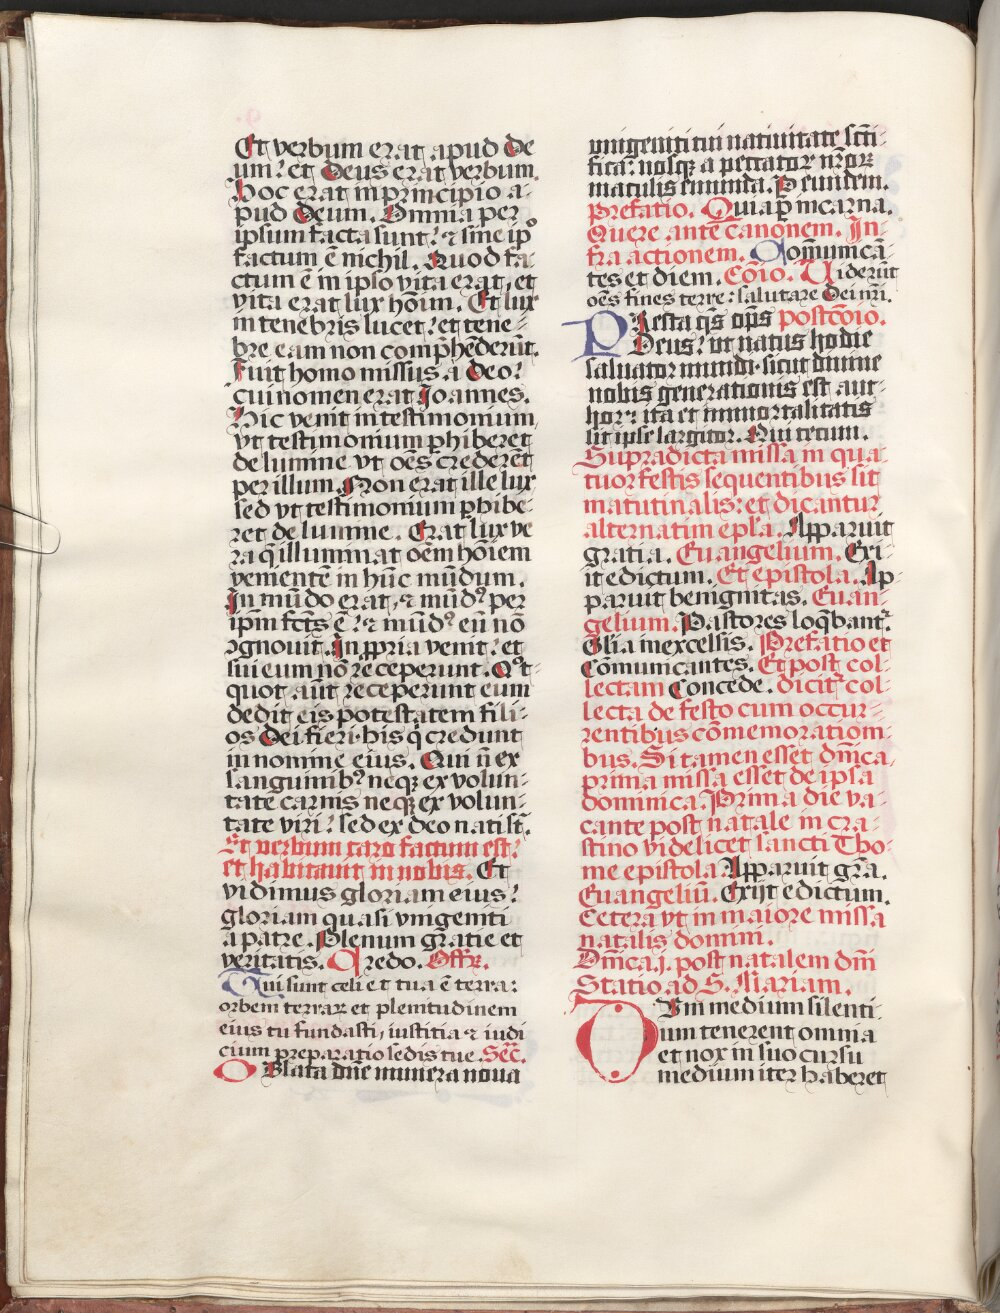 Et verbum erat apud de
um: et deus erat verbum.
hoc erat in principio a-
pud deum. Omnia per
ipsum facta sunt: ⁊ sine ipº
factum ē nichil. Quod fa-
ctum ē in ipso vita erat, et
vita erat lux hōīm. Et lux
in tenebris lucet: et tene-
bre eam non comp̄hēderūt.
Fuit homo missus a deo:
cui nomen erat Joannes.
Hic venit in testimonium
vt testimonium phiberet
de lumine vt oēs crederēt
per illum. Non erat ille lux
sed vt testimonium phibe-
ret de lumine. Erat lux ve
ra q̄ illuminat oēm hōīem
venientē in hūc mūdum.
In mūdo erat, ⁊ mūdꝰ per
ipm̄ fct̄s ē: ⁊ mūdꝰ eū nō
ꝯgnouit. In ppria venit: et
sui eum nō receperunt. Qºt-
quot aūt receperunt eum
dedit eis potestatem fili-
os dei fieri. his q̇ credunt
in nomine eius. Qui n̄ ex
sanguinibꝰ neqꝫ ex volun-
tate carnis neqꝫ ex volun-
tate viri: sed ex deo nati st̄.
Et verbum caro factum est:
et habitauit in nobis. Et
vidimus gloriam eius:
gloriam quasi vnigeniti
a patre. Plenum gratie et
veritatis. Credo. Offr̄.
Tui sunt celi et tua ē terra:
orbem terraꝝ et plenitudinem
eius tu fundasti, iustitia ⁊ iudi
cium preparatio sedis tue. Sec̄.
Oblata dn̄e munera noua
vnigeniti tui natiuitate scti-
fica: nosqꝫ a peccatoꝝ nr̄oꝝ
maculis emunda. P eundem.
Prefatio. Quia p̄ incarna.
Quere ante canonem. In-
fra actionem. Cōmunicā-
tes et diem. Cōīo. Viderūt
oēs fines terre: salutare dei nr̄i.
PResta q̄s op̄s postcōīo.
Deus: vt natus hodie
saluator mundi. sicut diuine
nobis generationis est auc-
tor: ita et immortalitatis
sit ipse largitor. Qui tecum.
Supradicta missa in qua-
tuor festis sequentibus sit
matutinalis: et dicantur
alternatim epl̄a. Apparuit
gratia. Euangelium. Exi-
it edictum. Et epistola. Ap-
paruit benignitas. Euan-
gelium. Pastores loq̄bant᷑.
Gl̄ia in excelsis. Prefatio et
Cōmunicantes. Et post col-
lectam Concede. dicit᷑ col-
lecta de festo cum occur-
rentibus cōmemoration-
bus. Si tamen esset dn̄ica
prima missa esset de ipsa
dominica. Prima die va-
cante post natale in cra-
stino videlicet sancti Tho-
me epistola Apparuit gr̄a.
Euangeliū. Exijt edictum.
Cetera vt in maiore missa
natalis domini.
Dn̄ica .j. post natalem dn̄i
Statio ad S. Mariam.
DVm medium silenti-
um tenerent omnia
et nox in suo cursu
medium iter haberet